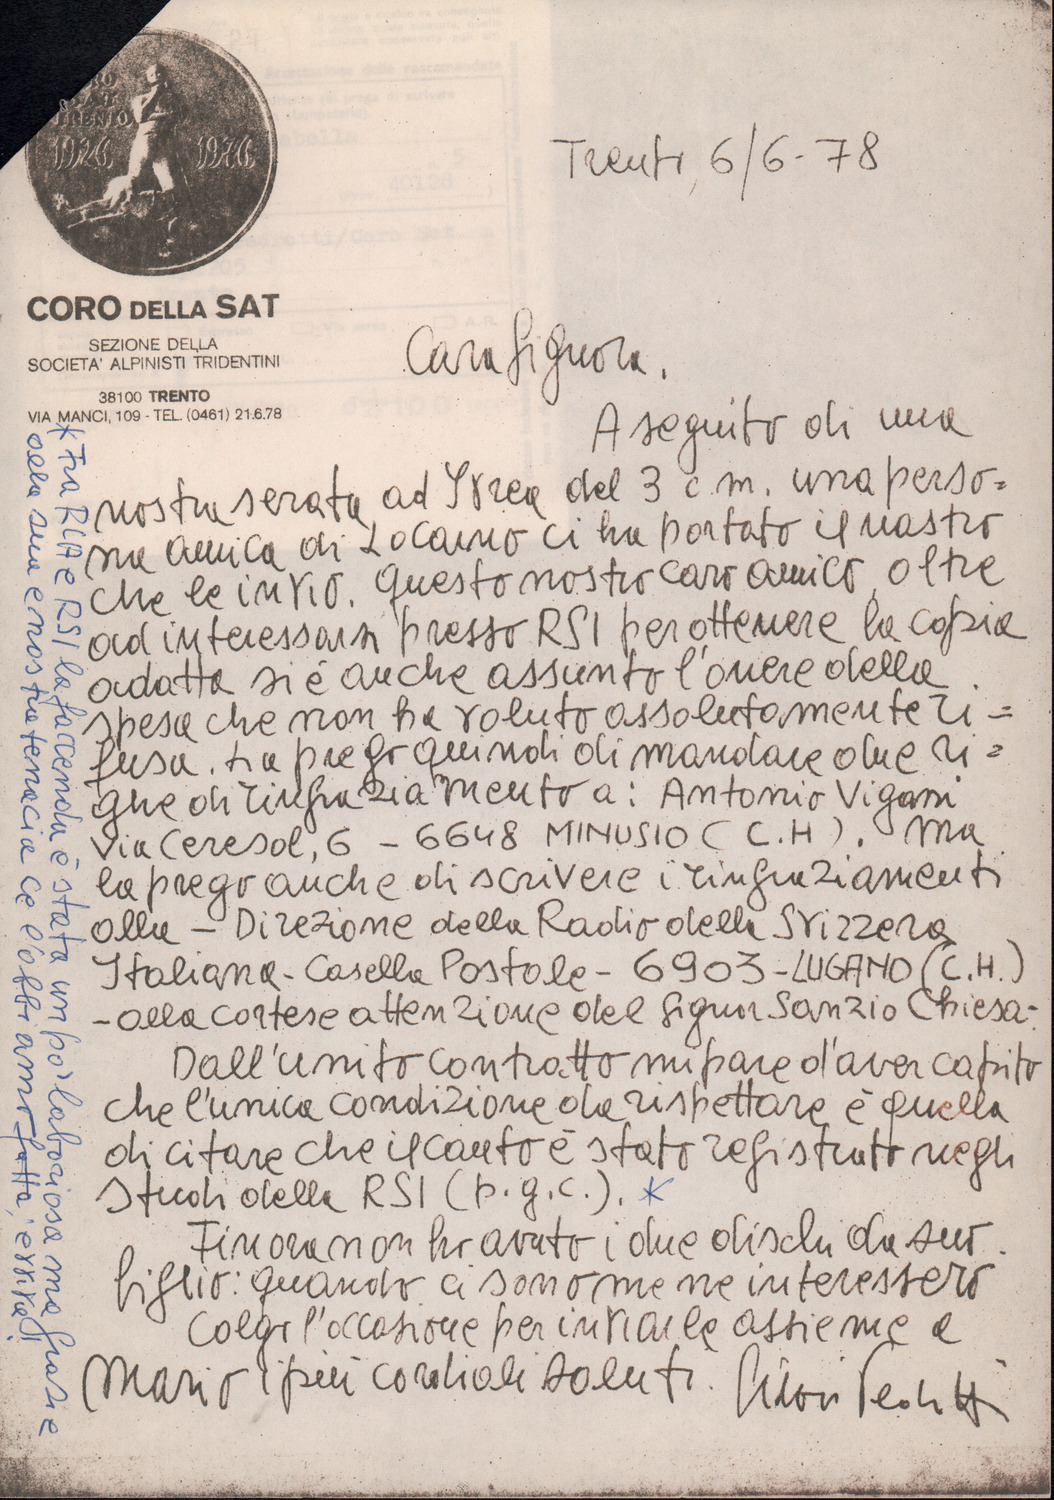 CORO
S.A.T.
TRENTO
1926 1976
CORO DELLA SAT
SEZIONE DELLA
SOCIETA' ALPINISTI TRIDENTINI
38100 TRENTO
VIA MANCI, 109 - TEL. (0461) 21.6.78
Trento, 6/6-78
Cara Signora,
A seguito di una
nostra serata ad Ivrea del 3 c.m. una perso=
na amica di Locarno ci ha portato il nastro
che le invio. Questo nostro caro amico, oltre
ad interessarsi presso RSI per ottenere la copia
adatta si è anche assunto l'onere della
spesa che non ha voluto assolutamente ri=
fusa. La prego quindi di mandare due ri=
ghe di ringraziamento a: Antonio Vigani
Via Ceresol, 6 - 6648 MINUSIO (C.H). Ma
la prego anche di scrivere i ringraziamenti
alla - Direzione della Radio della Svizzera
Italiana - Casella Postale - 6903 - LUGANO (C.H.)
- alla cortese attenzione del Signor Sanzio Chiesa -
Dall'unito contratto mi pare d'aver capito
che l'unica condizione da rispettare è quella
di citare che il canto è stato registrato negli
studi della RSI (p.g.c.). *
Finora non ho avuto i due dischi da suo
figlio: quando ci sono me ne interesserò
Colgo l'occasione per inviarle assieme a
Mario i più cordiali saluti. Silvio Pedrotti
* Fra RCA e RSI la faccenda è stata un po' laboriosa ma grazie
alla sua e nostra tenacia ce l'abbiamo fatta, evviva!